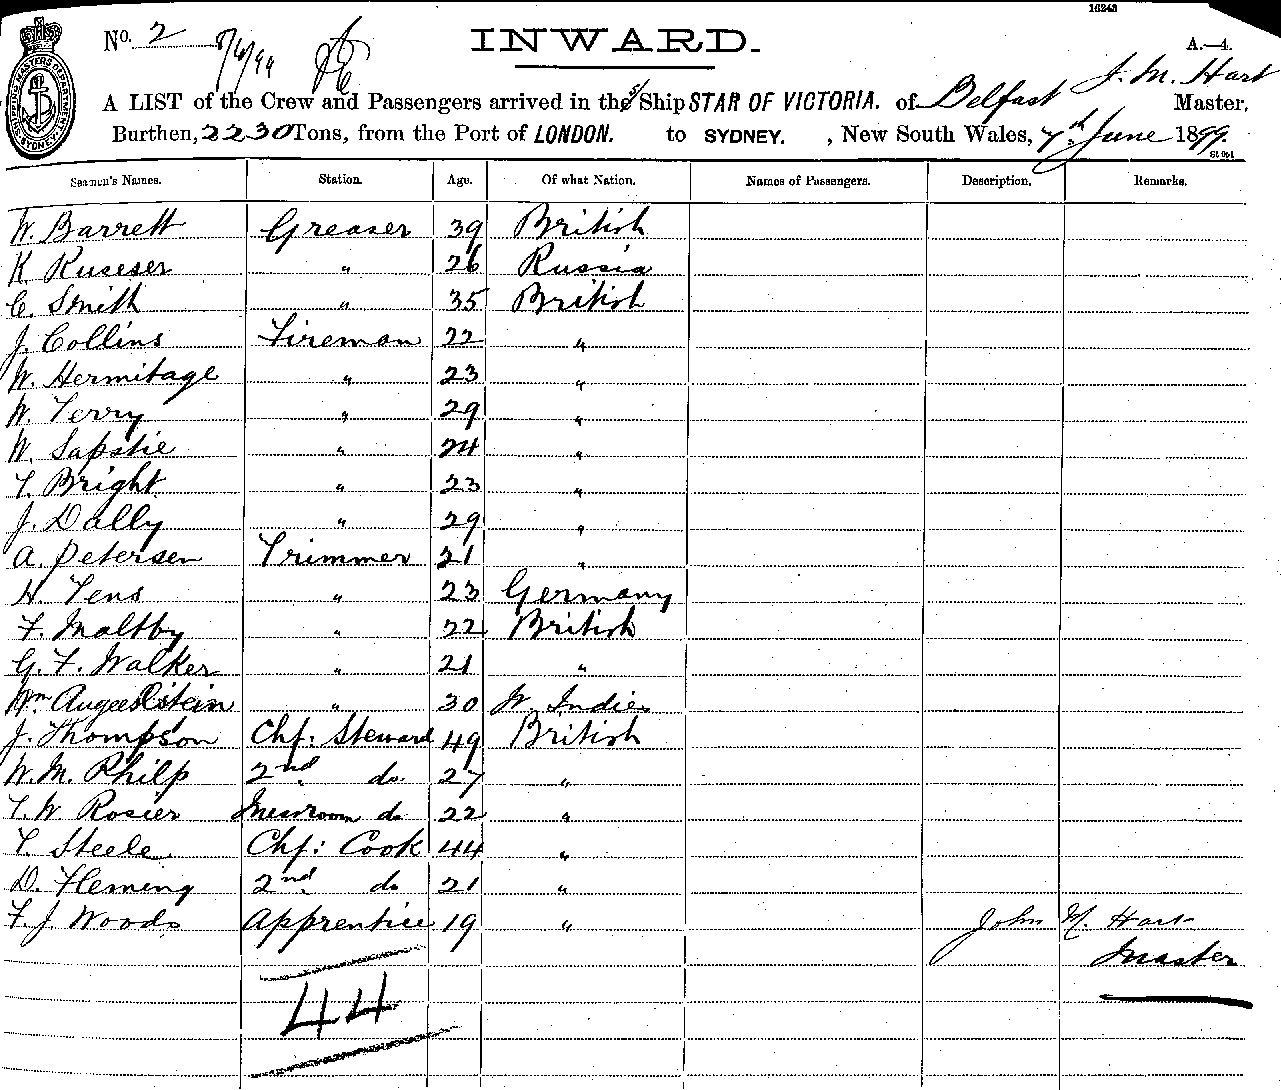 16243
No. 2 8/6/99 INWARD. A.—4.
J. M. Hart
A LIST of the Crew and Passengers arrived in the S/Ship STAR OF VICTORIA. of Belfast Master,
Burthen, 2230 Tons, from the Port of LONDON. to SYDNEY. , New South Wales, 7th June 1899.
Seamen's Names. Station. Age. Of what Nation. Names of Passengers. Description. Remarks.
W. Barrett Greaser 39 British
K. Ruseser " 26 Russia
C. Smith " 35 British
J. Collins Fireman 22 "
W. Hermitage " 23 "
W. Terry " 29 "
W. Sapstie " 24 "
T. Bright " 23 "
J. Dally " 29 "
A. Petersen Trimmer 21 "
H. Tens " 23 Germany
F. Maltby " 22 British
G. F. Walker " 21 "
Wm. " 30 W. Indies
J. Thompson Chf: Steward 49 British
W. M. Philp 2nd do. 27 "
T. W. Rosier Messroom do 22 "
T. Steele Chf: Cook 44 "
D. Fleming 2nd do 21 "
F. J. Woods Apprentice 19 " John M. Hart
Master
44